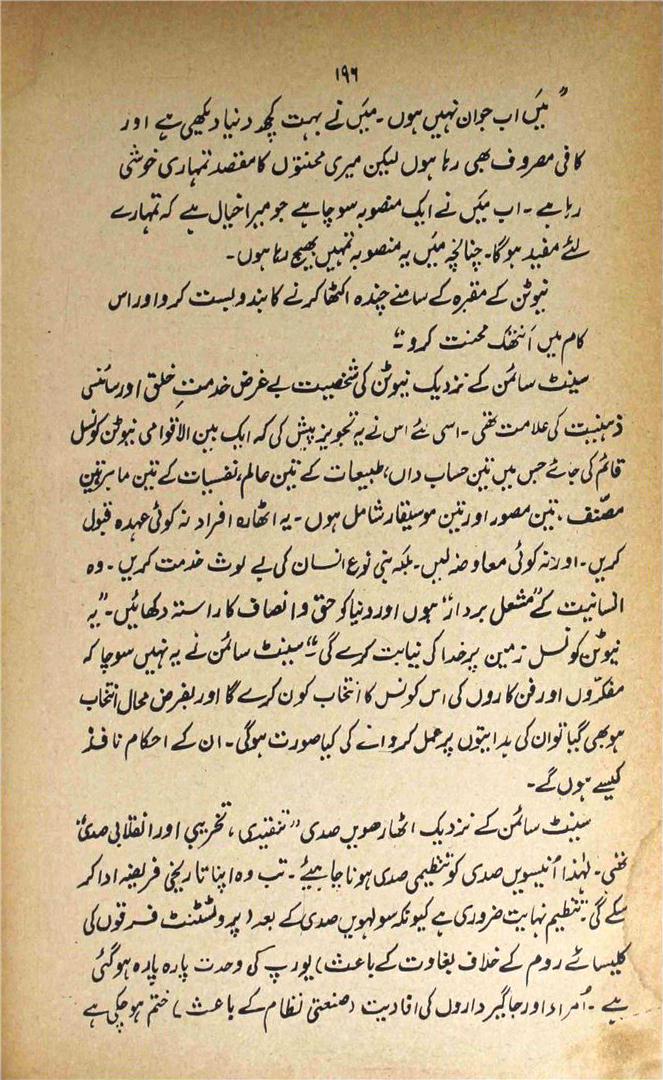 ۱۹۶
"میں اب جوان نہیں ہوں۔ میں نے بہت کچھ دنیا دیکھی ہے اور
کافی مصروف بھی رہا ہوں لیکن میری محنتوں کا مقصد تمہاری خوشی
رہا ہے۔ اب میں نے ایک منصوبہ سوچا ہے جو میرا خیال ہے کہ تمہارے
لئے مفید ہوگا۔ چنانچہ میں یہ منصوبہ تمہیں بھیج رہا ہوں۔
نیوٹن کے مقبرہ کے سامنے چندہ اکٹھا کرنے کا بندوبست کرو اور اس
کام میں اَنتھک محنت کرو۔"
سینٹ سائمن کے نزدیک نیوٹن کی شخصیت بے غرض خدمتِ خلق اور سائنسی
ذہنیت کی علامت تھی۔ اسی لئے اس نے یہ تجویز پیش کی کہ ایک بین الاقوامی نیوٹن کونسل
قائم کی جائے جس میں تین حساب داں، طبیعات کے تین عالم، نفسیات کے تین ماہر، تین
مصنف، تین مصور اور تین موسیقار شامل ہوں۔ یہ اٹھارہ افراد نہ کوئی عہدہ قبول
کریں۔ اور نہ کوئی معاوضہ لیں۔ بلکہ بنی نوع انسان کی بے لوث خدمت کریں۔ وہ
انسانیت کے "مشعل بردار" ہوں اور دنیا کو حق و انصاف کا راستہ دکھائیں۔ "یہ
نیوٹن کونسل زمین پر خدا کی نیابت کرے گی۔" سینٹ سائمن نے یہ نہیں سوچا کہ
مفکروں اور فن کاروں کی اس کونسل کا انتخاب کون کرے گا اور بفرض محال انتخاب
ہو بھی گیا تو ان کی ہدایتوں پر عمل کروانے کی کیا صورت ہوگی۔ ان کے احکام نافذ
کیسے ہوں گے۔
سینٹ سائمن کے نزدیک اٹھارھویں صدی "تنقیدی، تخریبی اور انقلابی صدی"
تھی۔ لہٰذا اُنیسویں صدی کو تنظیمی صدی ہونا چاہیئے۔ تب وہ اپنا تاریخی فریضہ ادا کر
سکے گی۔ تنظیم نہایت ضروری ہے کیونکہ سولہویں صدی کے بعد (پروٹسٹنٹ فرقوں کی
کلیسائے روم کے خلاف بغاوت کے باعث) یورپ کی وحدت پارہ پارہ ہوگئی
ہے۔ اُمراء اور جاگیرداروں کی افادیت (صنعتی نظام کے باعث) ختم ہوچکی ہے